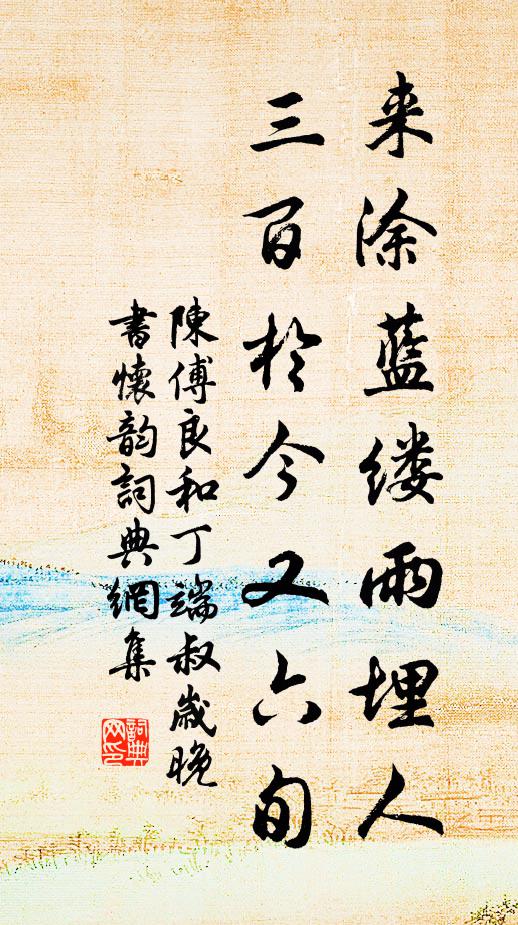 来涂蓝缕雨埋人
三百於今又六旬
陳傅良和丁端叔歲晚
書懷韵詞典網集
詞典
网印